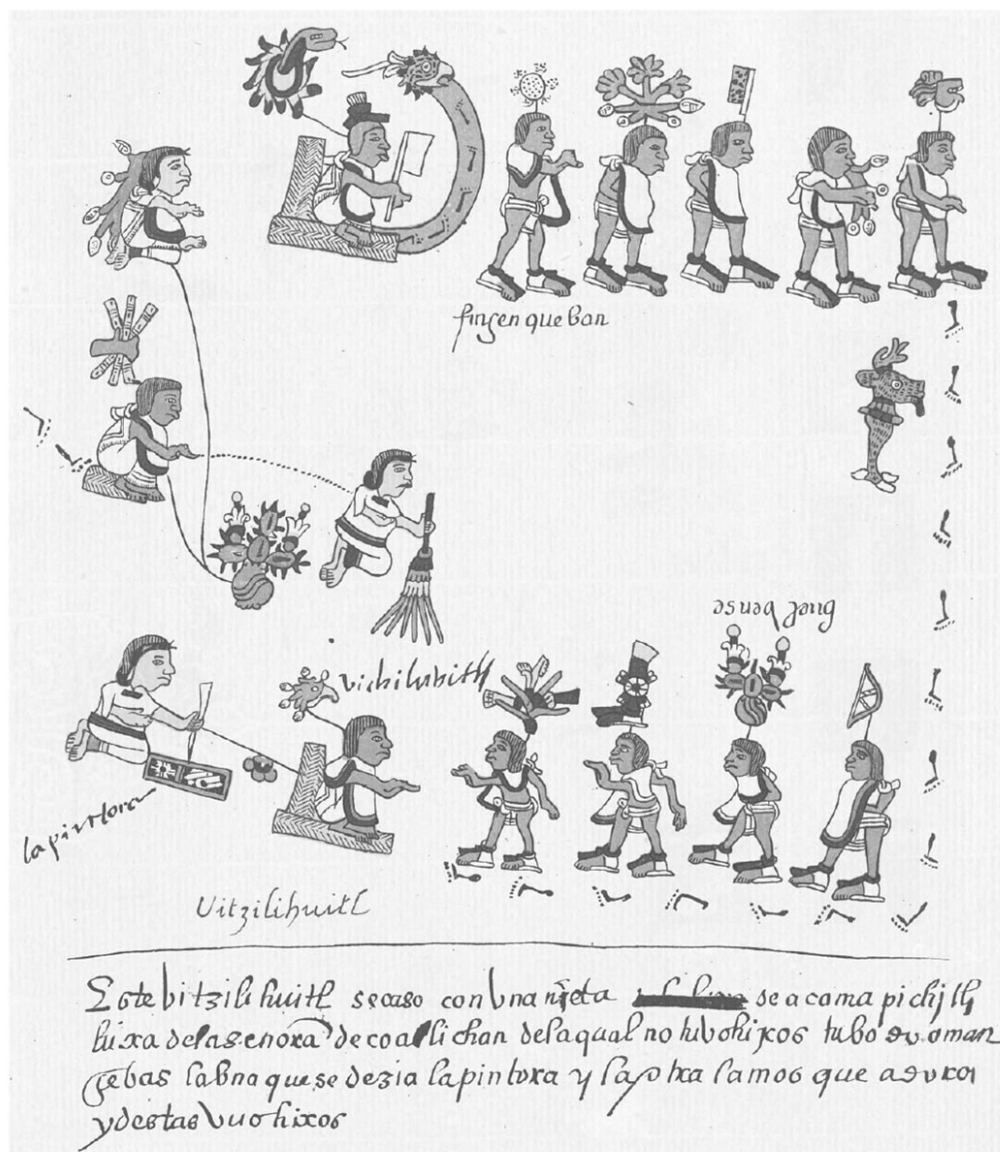 fingen que ban
buelbense
vichilubitl
la pintora
Uitzilihuitl
Este bitzilihuitl se caso con Vna njeta de acamapichjtli
hixa de la senora de coatlichan de la qual no tuvo hixos tubo man
cebas la bna que se dezia la pintora y la otra la mos que
y destas vuo hixos